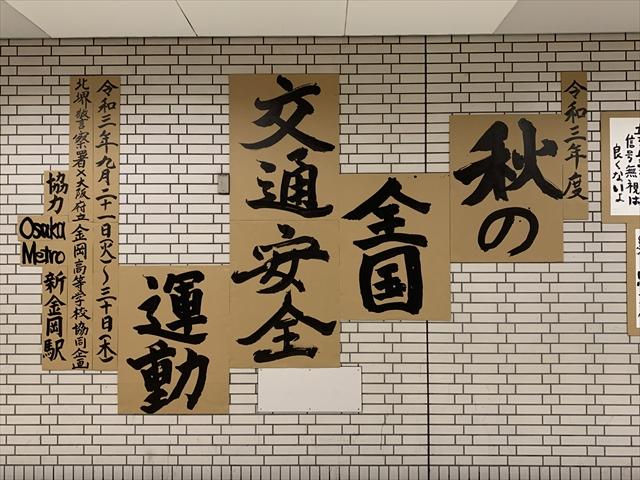 令和三年度
秋の
全国
交通安全
運動
令和三年九月二十一日(火)～三十日(木)
北堺警察署×大阪府立金岡高等学校協同企画
協力 Osaka Metro 新金岡駅
信号無視は
良くないよ